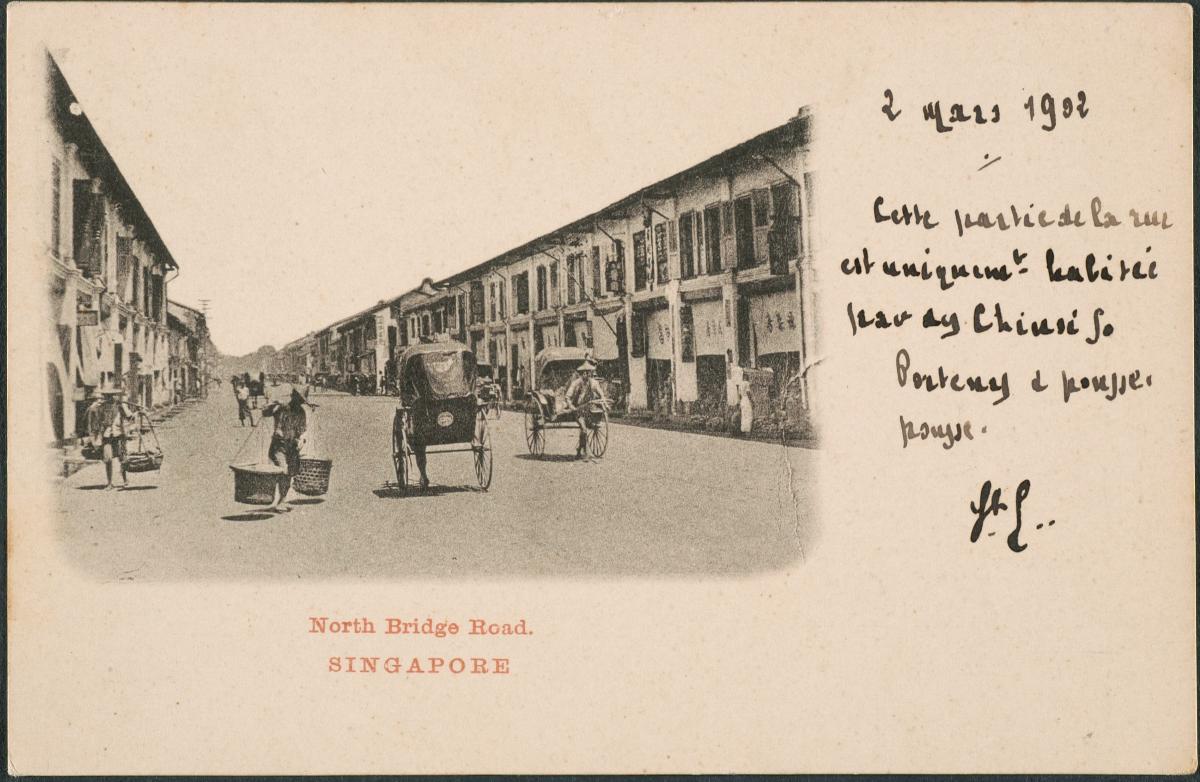 2 mars 1902
Cette partie de la rue
est uniquemt habitée
par des Chinois
Porteurs & pousse-
pousse.
North Bridge Road.
SINGAPORE